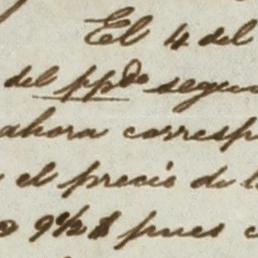 El 4 del
del ppdo segun
ahora corresp
el precio de l
9½ $ pues c